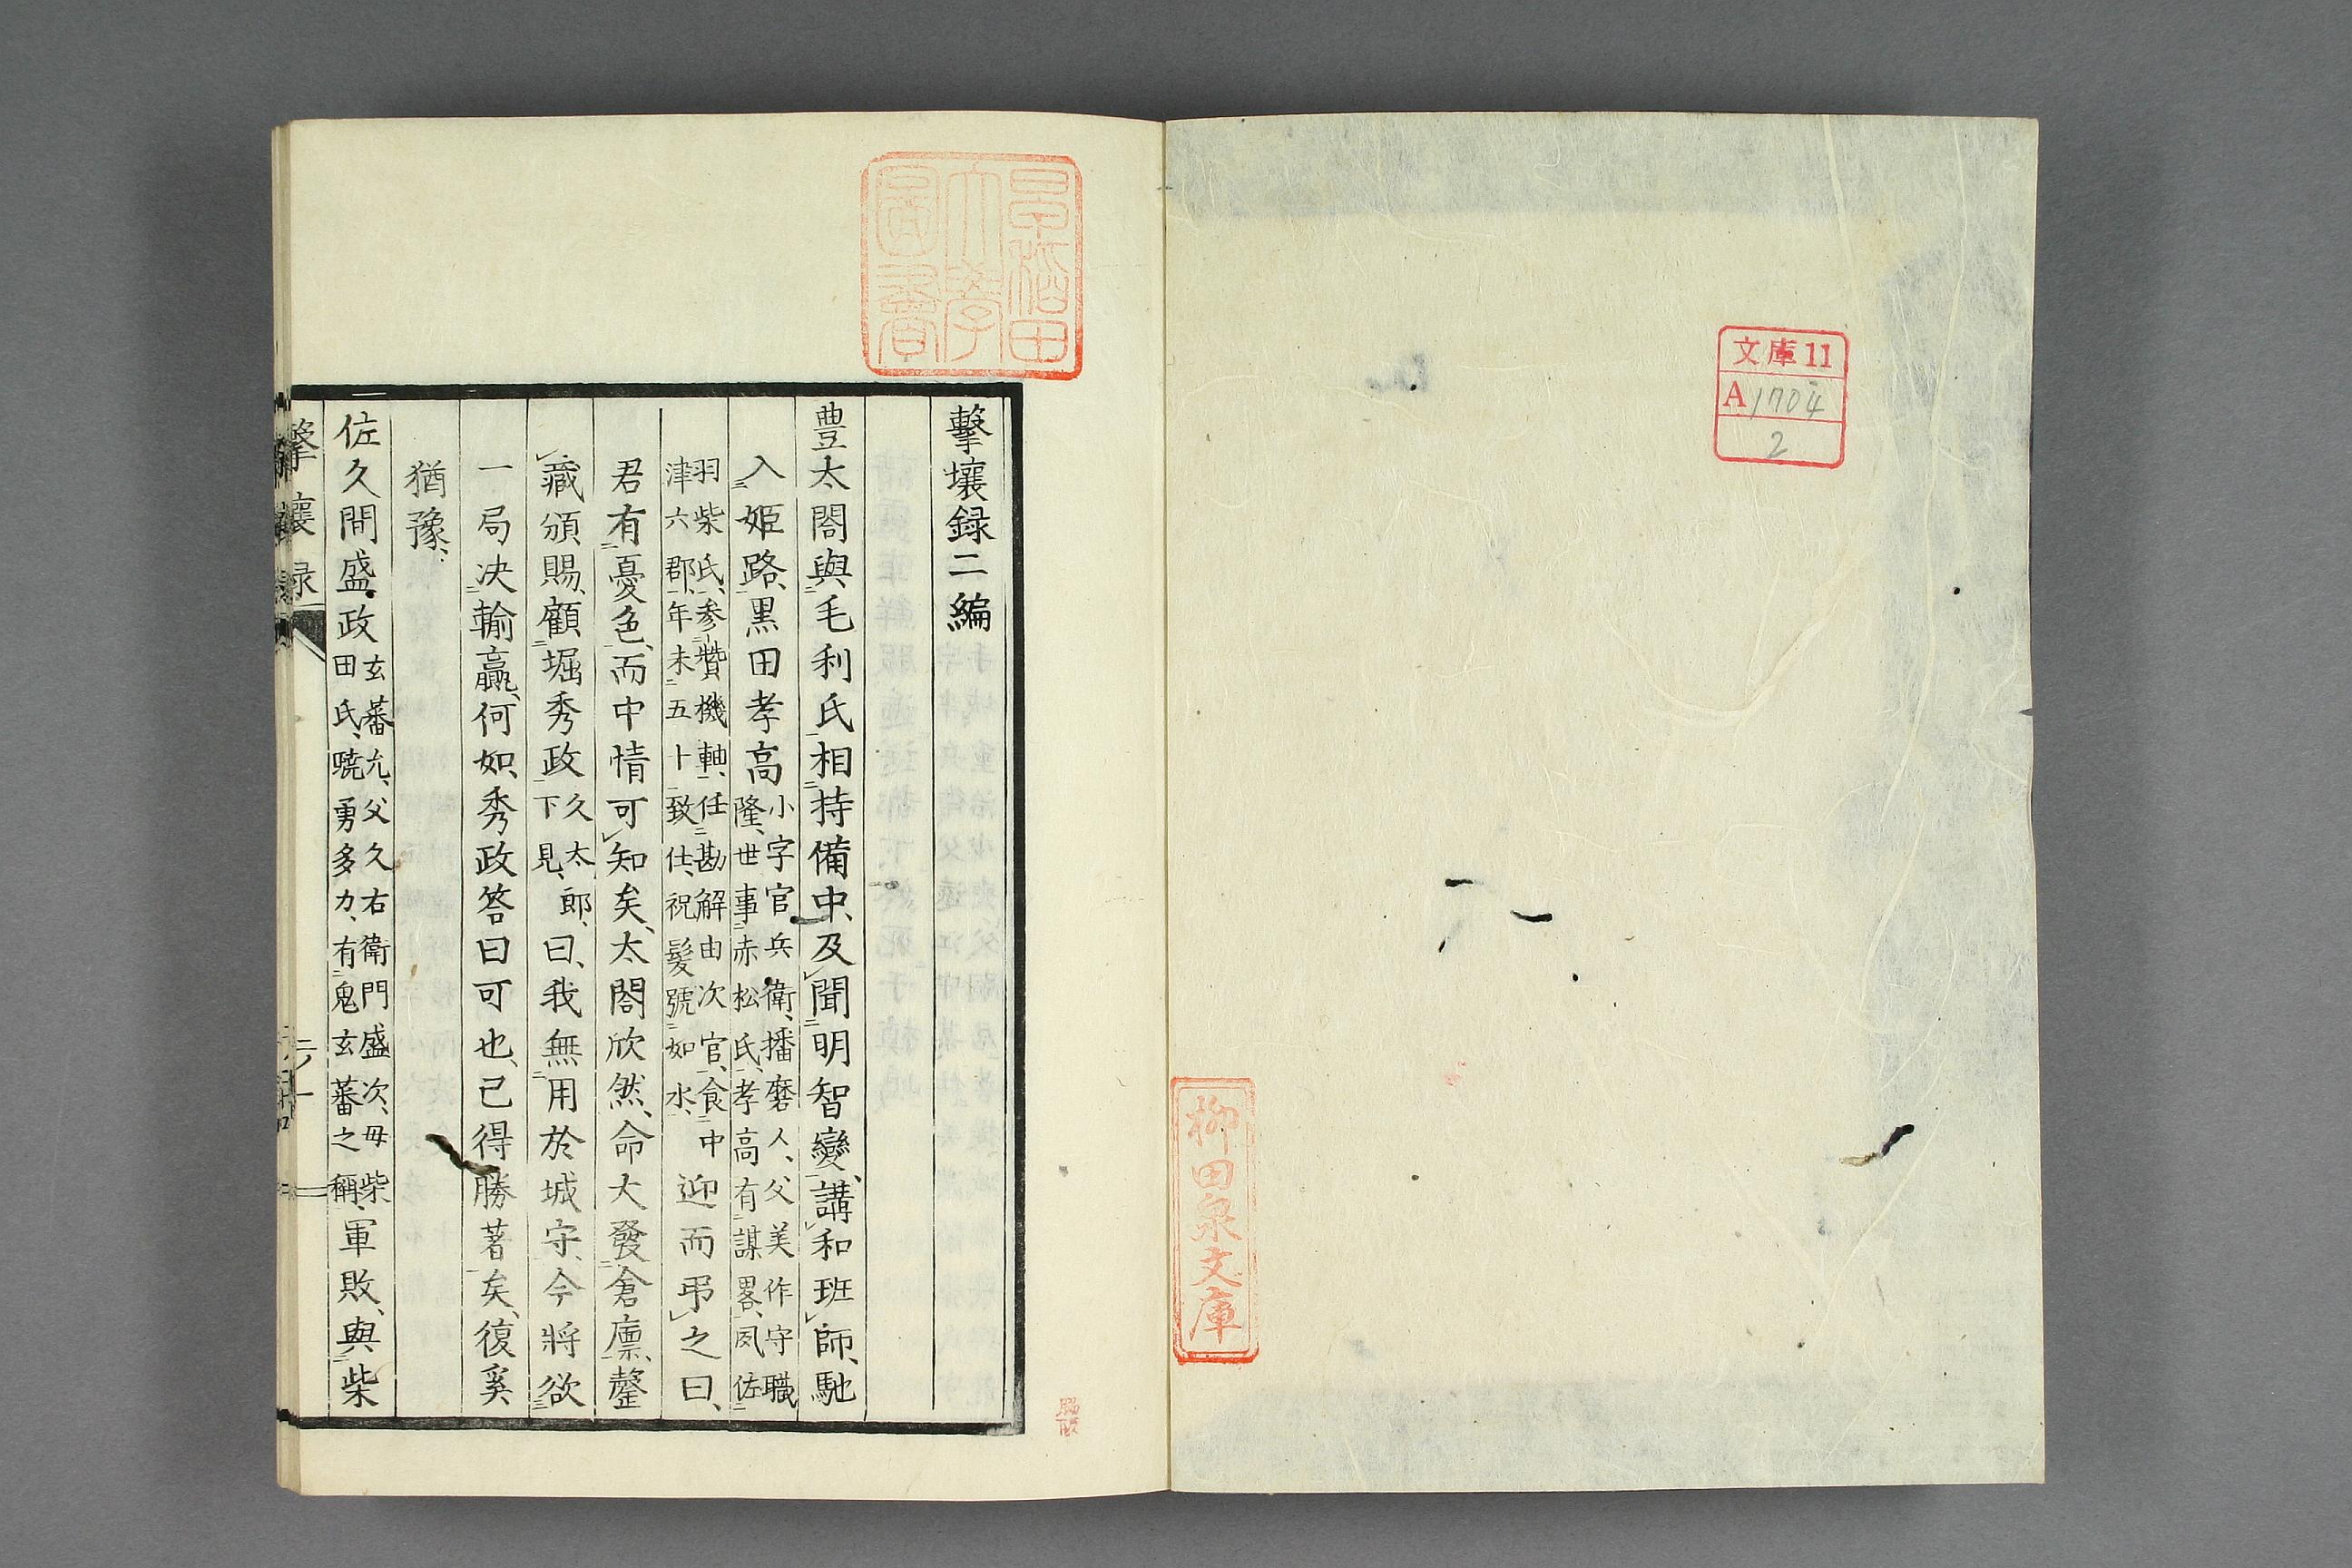 文庫11
A 1704
2
柳田泉文庫
早稲田
大學
圖書
擊壤録二編
豊太閤與毛利氏相持備中、及聞明智變、講和班師、馳
入姫路、黒田孝高小字官兵衛、播磨人、父美作守職
隆、世事赤松氏、孝高有謀畧、夙佐
羽柴氏、参贊機軸、任勘解由次官、食中
津六郡、年未五十致仕、祝髮號如水、迎而弔之曰、
君有憂色、而中情可知矣、太閤欣然、命大發倉廩、釐
藏頒賜、顧堀秀政久太郎、
下見、曰、我無用於城守、今將欲
一局决輸贏、何如、秀政答曰可也、已得勝著矣、復奚
猶豫、
佐久間盛政玄蕃允、父久右衛門盛次、母柴
田氏、驍勇多力、有鬼玄蕃之稱、軍敗、與柴
擊壤録